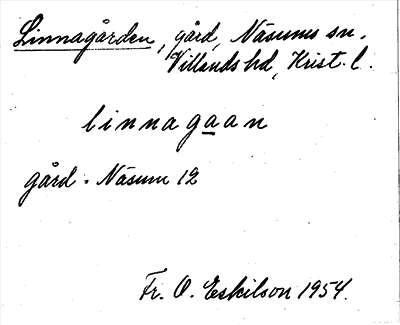 Linnagården, gård, Näsums sn.
Villands hd, Krist. l.
linnagaan
gård. Näsum 12
Fr. O. Eskilson 1954.